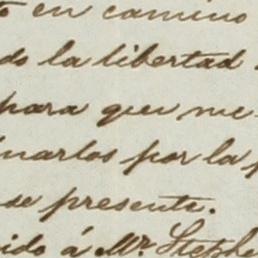 en camino
do la libertad
para que me
narlos por la
se presente.
ido á Mr. Stephe